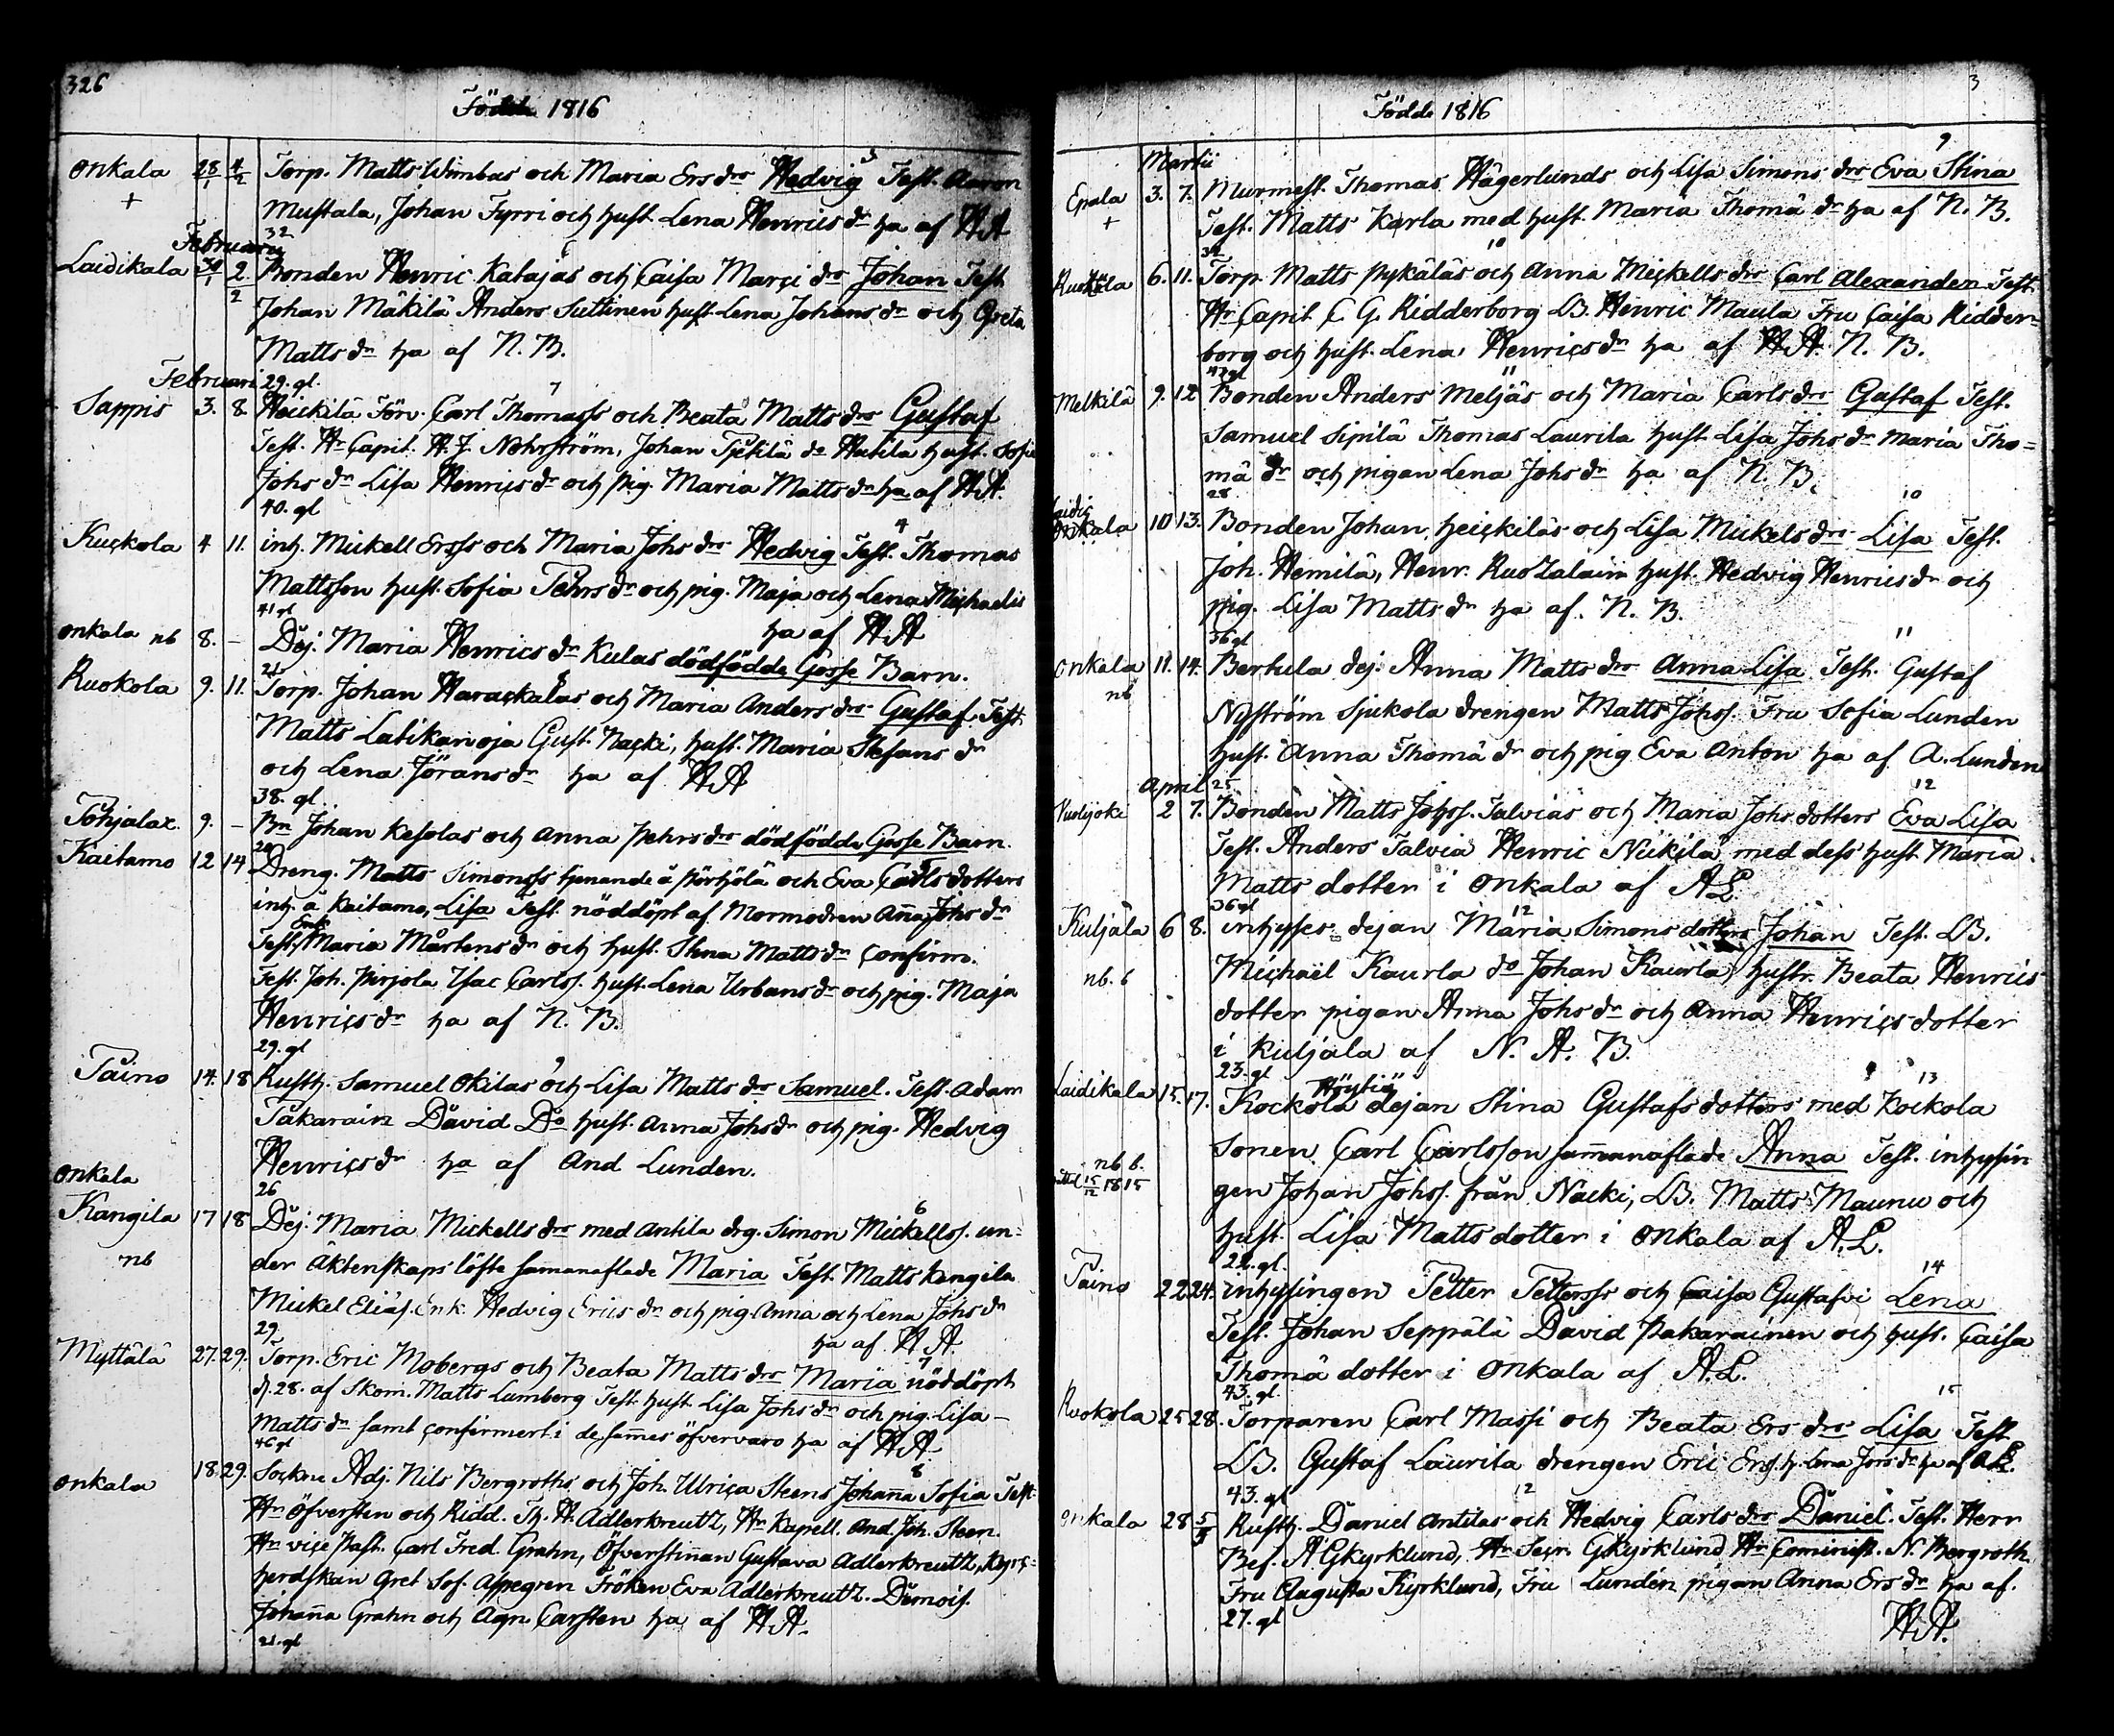 326
Födde 1816
Onkala 28/1 4/2 Torp. Matts Wimbas och Maria Ersdrs Hedvig Test. Aaron
+ Mustala, Johan Fyrri och hust. Lena Henricsdr ha af HA
Februarii 32
Laidikala 30/1 2/2 Bonden Henric Katajas och Caisa Marci drs Johan Test.
Johan Mäkilä Anders Suttinen hust. Lena Johansdr och Greta
Mattsdr ha af N. B.
Februari 29. gl.
Sappis 3. 8. Heickilä Förv. Carl Thomass och Beata Mattsdrs Gustaf
Test. Hr Capit. H. J. Nohrström, Johan do Hutila hust. Sofia
Johsdr Lisa Henricsdr och pig. Maria Mattsdr ha af HA.
40. gl
Kuckola 4 11. inh. Mickell Erss och Maria Johsdrs Hedvig Test. Thomas
Mattsson hust. Sofia Pehrsdr och pig. Maja och Lena Michaelis
41 gl ha af HA
Onkala nb 8. – Dej. Maria Henricsdr Kulas dödfödde Gosse Barn.
21
Ruokola 9. 11. Torp. Johan Harackalas och Maria Andersdrs Gustaf Test.
Matts Latikanoja Gust. Nacki, hust. Maria Stefansdr
och Lena Jöransdr ha af HA
38. gl.
Pohjalax. 9. – Bn Johan Kesolas och Anna Pehrsdrs dödfödde Gosse Barn.
Kaitamo 12 14 Dreng. Matts Simonss tjenande å Pörhölä och Eva Carls dotters
inh. å Kaitamo, Lisa Test. nöddöpt af Mormodren Aña Johsdr
Test. Enk. Maria Mårtensdr och hust. Stina Mattsdr confirm.
Test. Joh. Pirjola Isac Carlss. hust. Lena Urbansdr och pig. Maja
Henricsdr ha af N. B.
29. gl
Taino 14. 18 Rusth. Samuel Okilas och Lisa Mattsdrs Samuel. Test. Adam
Pakarain David Do hust. Anna Johsdr och pig. Hedvig
Henricsdr ha af And Lunden.
Onkala 26
Kangila 17 18 Dej. Maria Mickellsdrs med Antila drg. Simon Mickellss. un-
nb der Äktenskaps löfte samanaflade Maria Test. Matts Kangila
Mickel Eliäs. Enk. Hedvig Ericsdr och pig. Anna och Lena Johsdr
29 ha af HA
Myttälä 27. 29. Torp. Eric Mobergs och Beata Mattsdrs Maria nöddöpt
d. 28. af Skom. Matts Lumberg Test. hust. Lisa Johsdr och pig. Lisa
Mattsdr samt confirmert i desames öfvervaro ha af HA
46 gl
Onkala 18. 29. Sockne Adj. Nils Bergroths och Joh. Ulrica Steens Johaña Sofia Test.
Hr Öfversten och Ridd. Th. H. Adlerkreutz, Hr Kapell. And. Joh. Steen.
Hr vice Past. Carl Fred. Grahn, Öfverstiñan Gustava Adlerkreutz, Kyrc-
herdskan Gret. Sof. Aspegren Fröken Eva Adlerkreutz. Demois.
Johaña Grahn och Agn. Carsten ha af HA.
21. gl
3
Födde 1816
Martii 9
Epala 3. 7. Murmest. Thomas Hägerlunds och Lisa Simonsdrs Eva Stina
+ Test. Matts Karla med hust. Maria Thomädr ha af N. B.
10
Ruokola 6. 11. Torp. Matts Pykäläs och Anna Mickellsdrs Carl Alexander Test.
Hr Capit. C. G. Ridderborg LB. Henric Maula Fru Caisa Ridder-
borg och hust. Lena Henricsdr ha af HA. N. B.
42 gl 11
Melkilä 9. 12 Bonden Anders Meljäs och Maria Carlsdrs Gustaf Test.
Samuel Sipilä Thomas Laurila hust. Lisa Johsdr Maria Tho-
mädr och pigan Lena Johsdr ha af N. B.
28 10
Laidickala 10 13. Bonden Johan Heickiläs och Lisa Mickelsdrs Lisa Test.
Joh. Hemilä, Henr. Ruozalain hust. Hedvig Henricsdr och
pig. Lisa Mattsdr ha af. N. B.
36 gl 11
Onkala 11. 14. Bertula dej. Anna Mattsdrs Anna Lisa Test. Gustaf
nb Nyström Sjukola drengen Matts Johss. Fru Sofia Lunden
hust. Anna Thomädr och pig Eva Anton ha af A. Lunden
April 25 12
2 7. Bonden Matts Johss. Talvias och Maria Johs dotters Eva Lisa
Test. Anders Talvia Henric Nickilä med dess hust. Maria
Matts dotter i Onkala af AL.
36 gl 12
Kuljala 6 8. inhyses dejan Maria Simons dotters Johan Test. LB.
nb. 6 Michaël Kaurla do Johan Kaurla, hustr. Beata Henrics
dotter pigan Anna Johsdr och Anna Henrics dotter
i Kuljala af N. A. B.
23. gl 13
Laidikala 15. 17. Kockola Höystiä dejan Stina Gustafs dotters med Kockola
Sonen Carl Carlsson sammanaflade Anna Test. inhysin
nb 6. 15/12 1815 gen Johan Johss. från Nacki, LB. Matts Maunu och
hust. Lisa Matts dotter i Onkala af A. L.
22. gl. 14
Taino 22 24. inhysingen Petter Petterss och Caisa Gustafvi Lena
Test. Johan Seppälä David Pakarainen och hust. Caisa
Thomä dotter i Onkala af A. L.
43. gl. 15
Ruokola 25 28. Torparen Carl Massi och Beata Ersdrs Lisa Test.
LB. Gustaf Laurila drengen Eric Erss. h. Lena Jörsdr ha af AL.
43. gl 12
Onkala 28 Rusth. Daniel Antilas och Hedvig Carlsdrs Daniel. Test. Herr
Bef. AGKyrklund, Hr Secr. GKyrklund Hr Cominist. N. Bergroth
Fru Augusta Kyrklund, Fru Lundén pigan Anna Ersdr ha af.
27. gl HA.